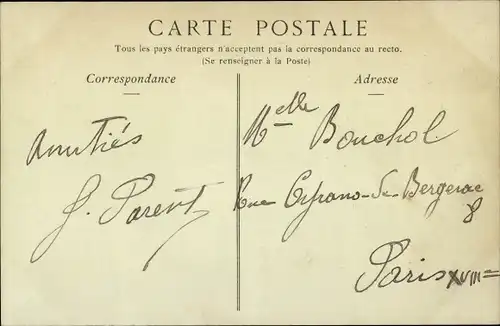 CARTE POSTALE
Tous les pays étrangers n'acceptent pas la correspondance au recto.
(Se renseigner à la Poste)
Correspondance
Adresse
Amitiés
J. Parent
Melle Bouchol
Rue Cyrano-de-Bergerac
8
Paris XVIII=